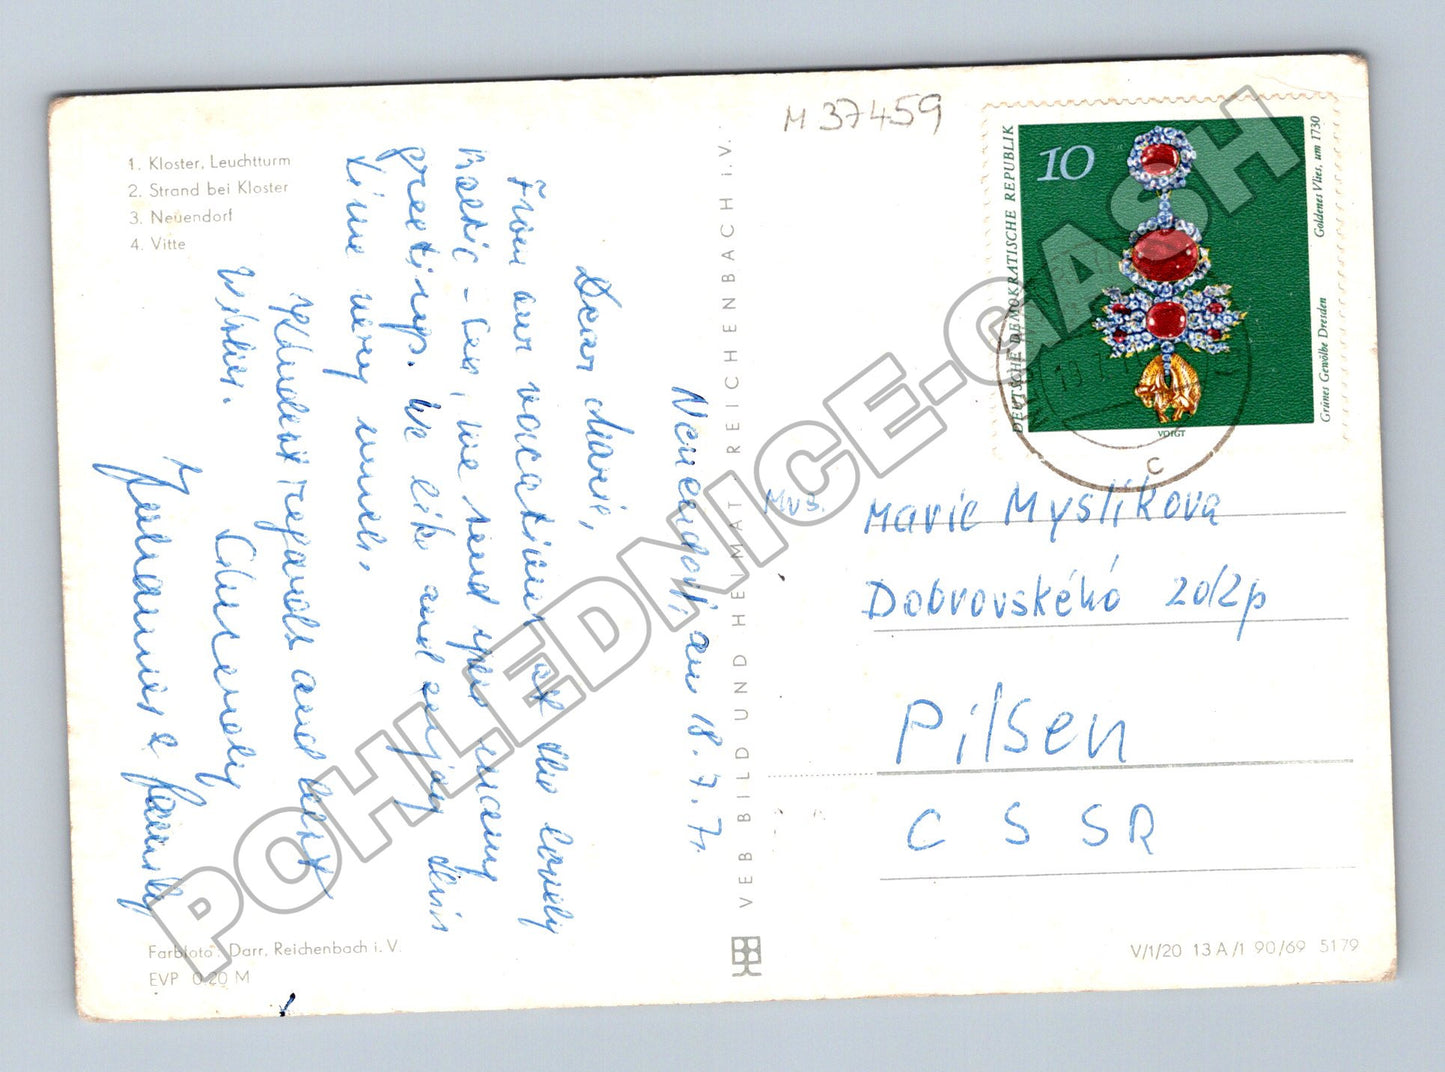 M 37459
1. Kloster, Leuchtturm
2. Strand bei Kloster
3. Neuendorf
4. Vitte
DEUTSCHE DEMOKRATISCHE REPUBLIK
10
Goldenes Vlies, um 1730
Grünes Gewölbe Dresden
VOIGT
C
am 18. 7. 71
Dear Marie,
From our vacations at the lovely
Baltic - Sea, we send you many
greetings. We like and enjoy this
time very much.
Kindest regards and best
wishes.
Johannes & family
Mus.
Marie Myslíková
Dobrovského 20/2p
Pilsen
CSSR
VEB BILD UND HEIMAT · REICHENBACH i. V.
Farbfoto: Darr, Reichenbach i. V.
EVP 0.20 M
V/1/20 13 A/1 90/69 5179
POHLEDNICE-GASH